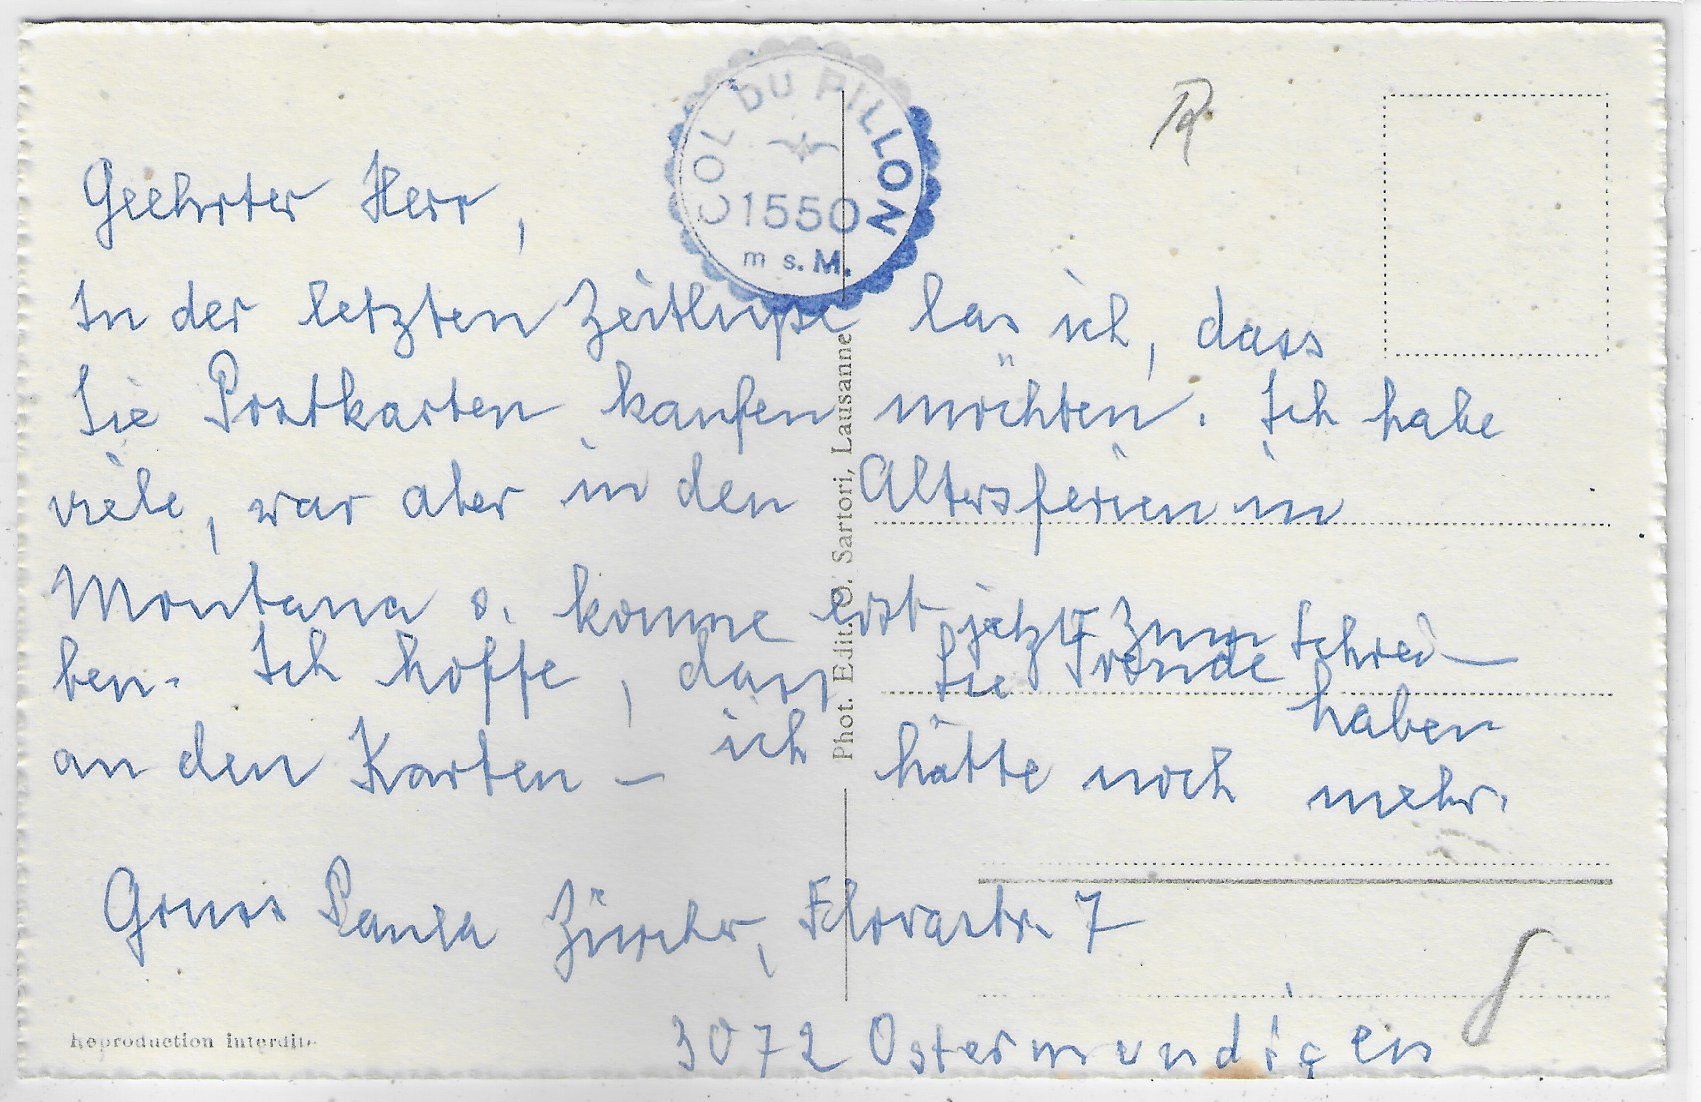 COL DU PILLON
1550
m s. M.
Geehrter Herr,
In der letzten Zeitlupe las ich, dass
Sie Postkarten kaufen möchten. Ich habe
viele, war aber in den Altersferien in
Montana u. komme erst jetzt zum Schrei-
ben. Ich hoffe, dass Sie Freude haben
an den Karten – ich hätte noch mehr.
Gruss Paula Zürcher, Florastr. 7
3072 Ostermundigen
Phot. Edit. O. Sartori, Lausanne
Reproduction interdite